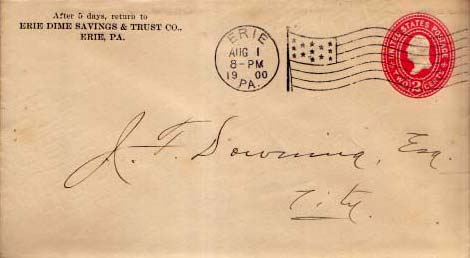 After 5 days, return to
ERIE DIME SAVINGS & TRUST CO.,
ERIE, PA.
ERIE
AUG 1
8-PM
1900
PA.
UNITED STATES POSTAGE
TWO 2 CENTS
J. F. Downing, Esq.
City.